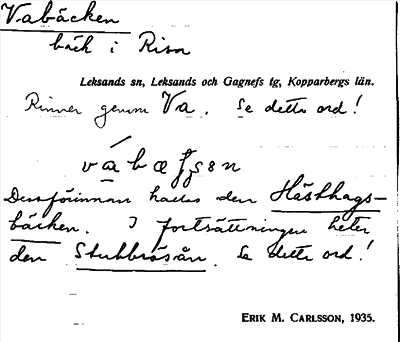 Vabäcken
bäck i Risa
Leksands sn, Leksands och Gagnefs tg, Kopparbergs län.
Rinner genom Va. Se detta ord!
Dessförinnan kallas den Hästhags-
bäcken. I fortsättningen heter
den Stubbrosån. Se detta ord!
ERIK M. CARLSSON, 1935.